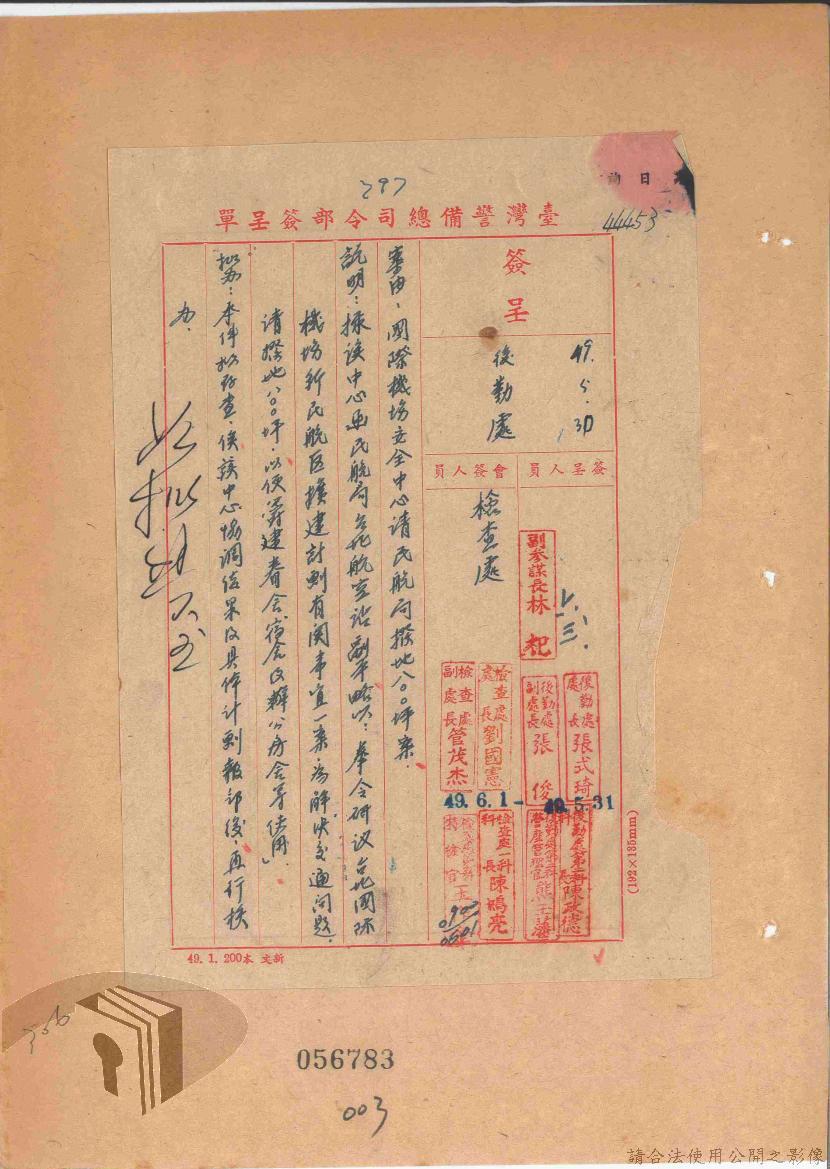 297
44453
臺灣警備總司令部簽呈單
簽呈
49.5.30
後勤處
簽呈人員
會簽人員
檢查處
副參謀長林
後勤處處長張式琦
後勤處副處長張俊
檢查處處長劉國憲
檢查處副處長管茂杰
49.5.31
49.6.1-
後勤處第三科科長陳政德
檢查處一科科長陳鳴亮
0900
0601
案由：國際機場安全中心請民航局撥地八００坪案．
說明：據該中心函民航局台北航空站副本略以：奉令研议台北國际
機場新民航区擴建計劃有関事宜一案，為解决交通问題，
请撥地八００坪，以便籌建眷舍宿舍及辦公房舍等使用」
擬办：本件拟存查，俟該中心協調结果及具体計劃報部後，再行核
办．
如擬
(192×135mm)
49. 1. 200本 文新
056783
003
請合法使用公開之影像